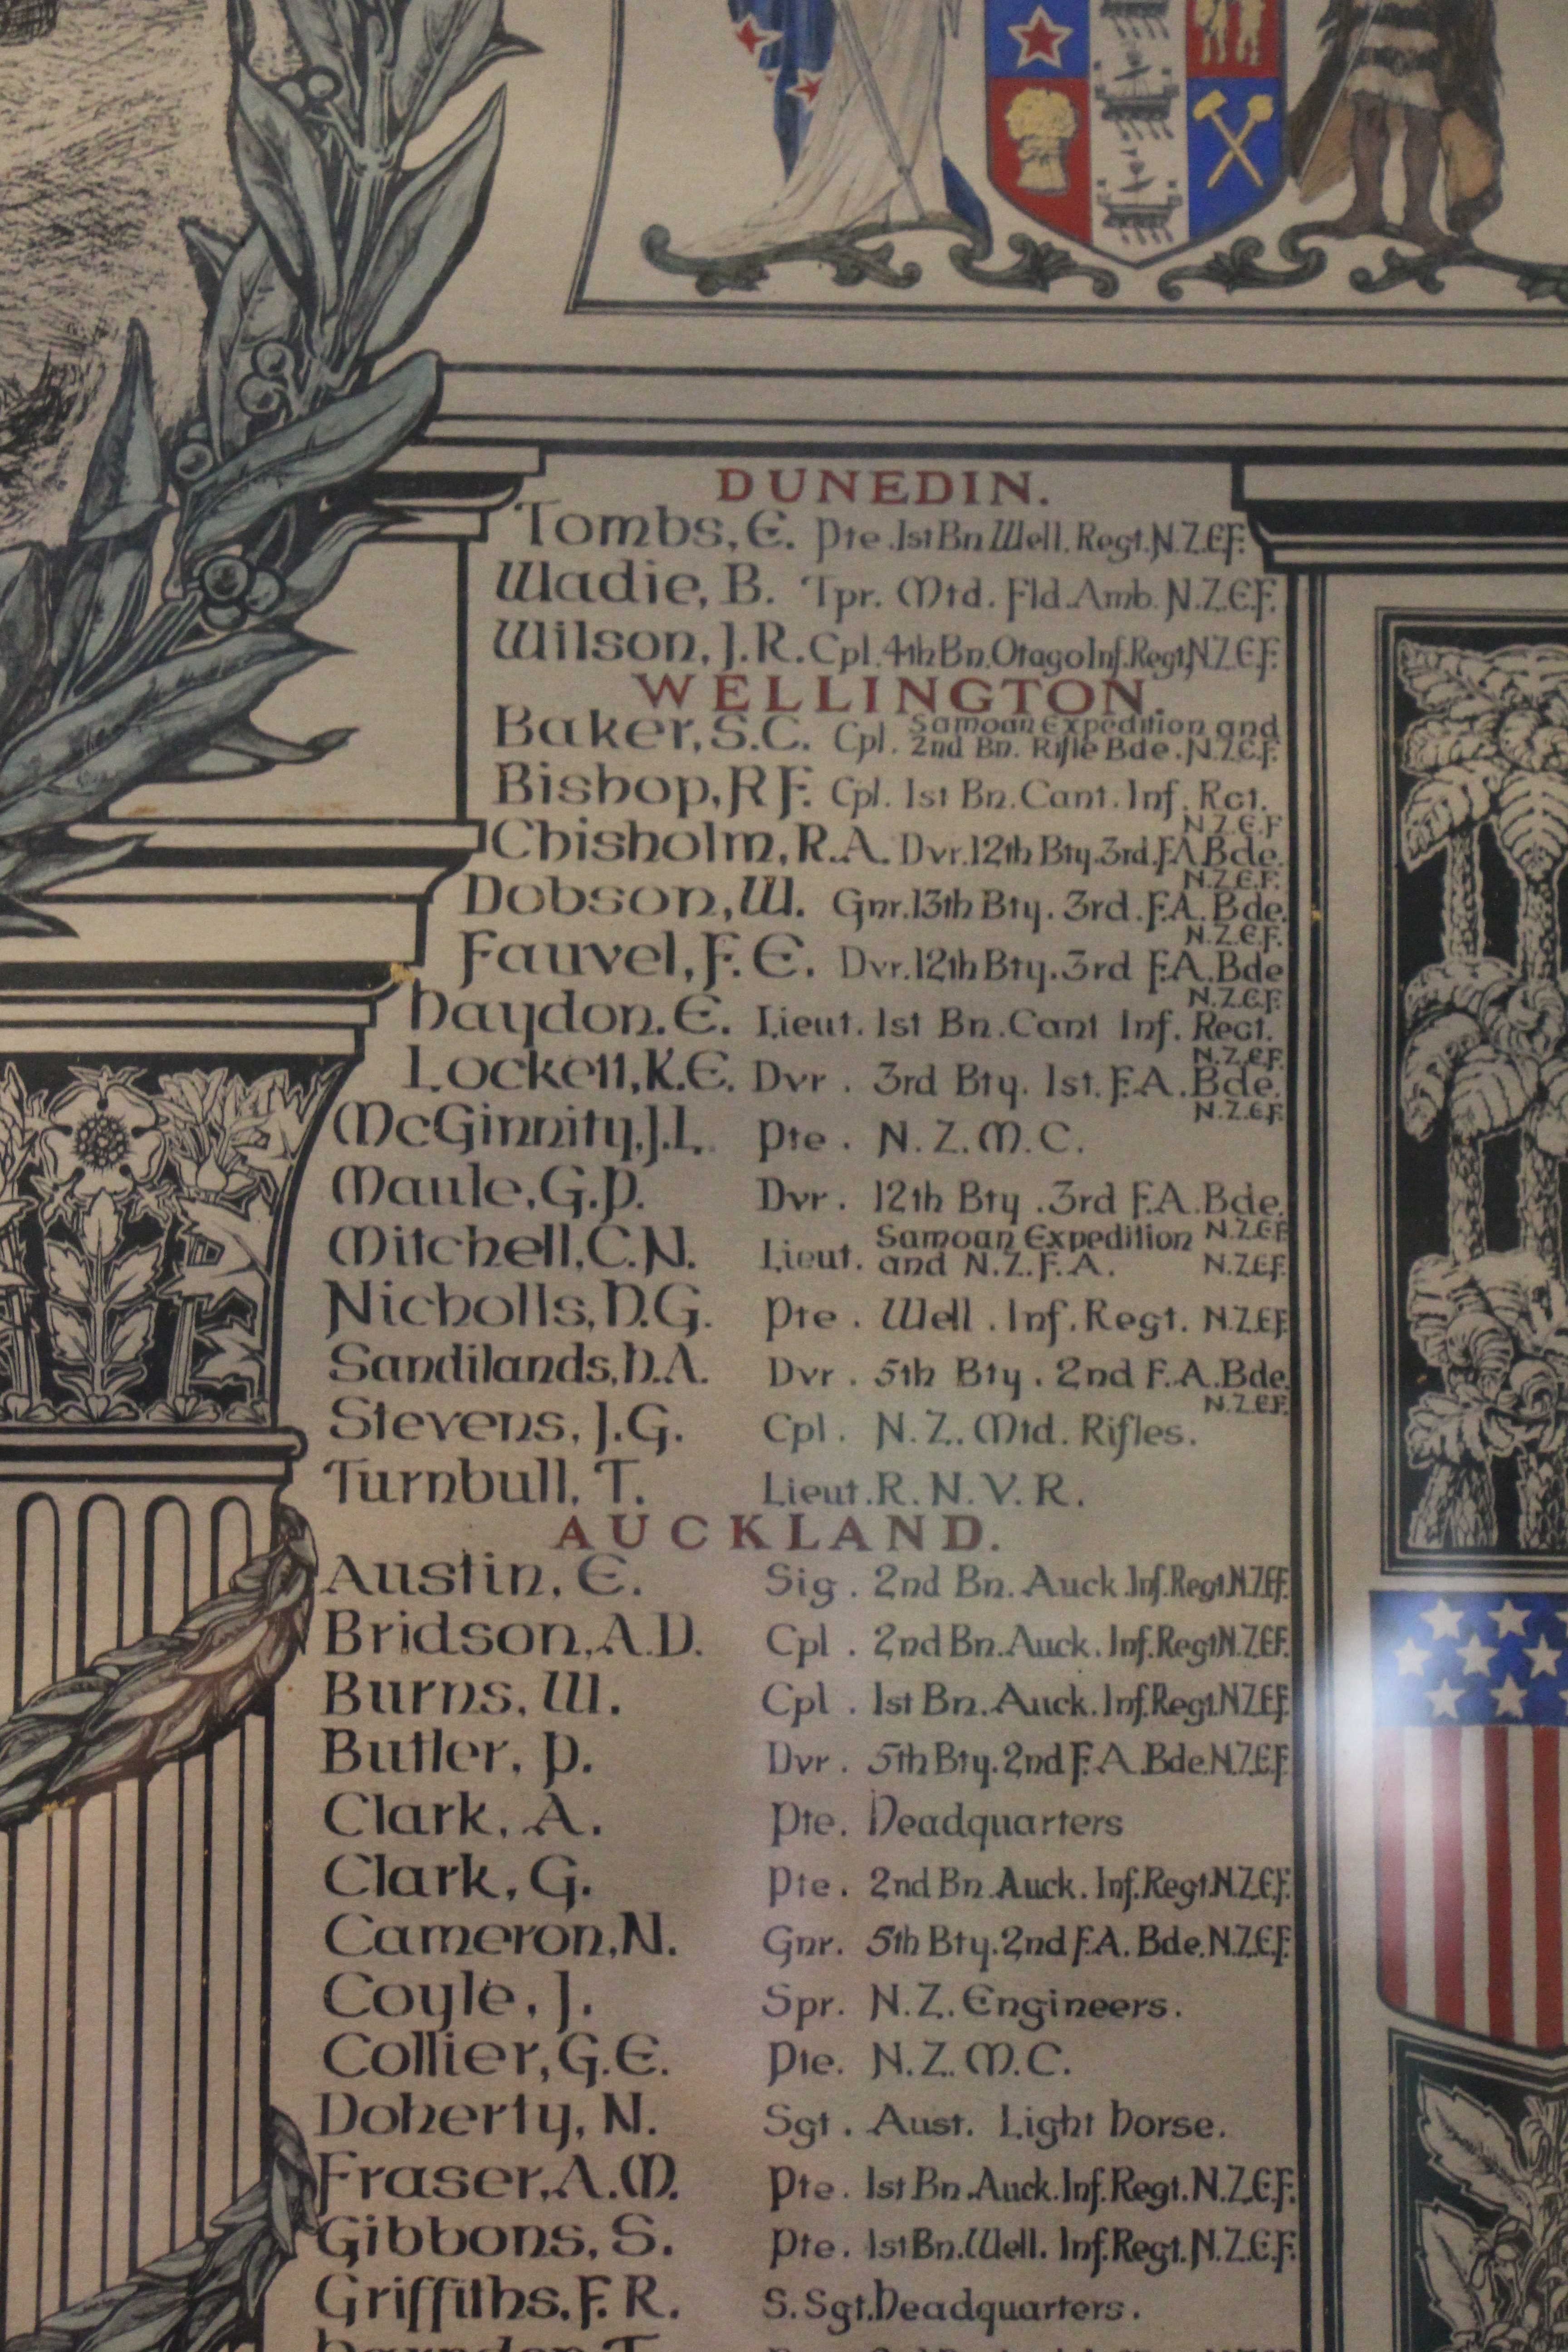 DUNEDIN.
Tombs, E. Pte. 1st Bn. Well. Regt. N.Z.E.F.
Wadie, B. Tpr. Mtd. Fld. Amb. N.Z.E.F.
Wilson, J.R. Cpl. 4th Bn. Otago Inf. Regt. N.Z.E.F.
WELLINGTON.
Baker, S.C. Cpl. Samoan Expedition and
2nd Bn. Rifle Bde. N.Z.E.F.
Bishop, R F. Cpl. 1st Bn. Cant. Inf. Rgt.
N.Z.E.F
Chisholm, R.A. Dvr. 12th Bty. 3rd. F.A. Bde.
N.Z.E.F.
Dobson, W. Gnr. 13th Bty. 3rd. F.A. Bde.
N.Z.E.F.
Fauvel, F. E. Dvr. 12th Bty. 3rd F.A. Bde
N.Z.E.F.
Haydon. E. Lieut. 1st Bn. Cant Inf. Regt.
N.Z.E.F.
Lockett, K.E. Dvr. 3rd Bty. 1st. F.A. Bde.
N.Z.E.F.
McGinnity, J.L. Pte. N.Z.M.C.
Maule, G.P. Dvr. 12th Bty. 3rd F.A. Bde.
N.Z.E.F.
Mitchell, C.N. Lieut. Samoan Expedition
and N.Z.F.A. N.Z.E.F.
Nicholls, H.G. Pte. Well. Inf. Regt. N.Z.E.F.
Sandilands, H.A. Dvr. 5th Bty. 2nd F.A. Bde.
N.Z.E.F.
Stevens, J.G. Cpl. N.Z. Mtd. Rifles.
Turnbull, T. Lieut. R.N.V.R.
AUCKLAND.
Austin, E. Sig. 2nd Bn. Auck. Inf. Regt. N.Z.E.F.
Bridson, A.D. Cpl. 2nd Bn. Auck. Inf. Regt. N.Z.E.F.
Burns, W. Cpl. 1st Bn. Auck. Inf. Regt. N.Z.E.F.
Butler, P. Dvr. 5th Bty. 2nd F.A. Bde. N.Z.E.F.
Clark, A. Pte. Headquarters
Clark, G. Pte. 2nd Bn. Auck. Inf. Regt. N.Z.E.F.
Cameron, N. Gnr. 5th Bty. 2nd F.A. Bde. N.Z.E.F.
Coyle, J. Spr. N.Z. Engineers.
Collier, G.E. Pte. N.Z.M.C.
Doherty, N. Sgt. Aust. Light Horse.
Fraser, A.M. Pte. 1st Bn. Auck. Inf. Regt. N.Z.E.F.
Gibbons, S. Pte. 1st Bn. Well. Inf. Regt. N.Z.E.F.
Griffiths, F. R. S. Sgt. Headquarters.